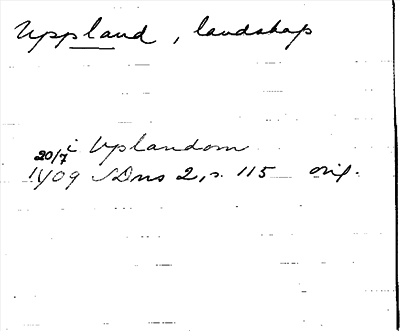 Uppland, landskap
i Uplandom
20/7
1409 SDns 2, s. 115 orig.